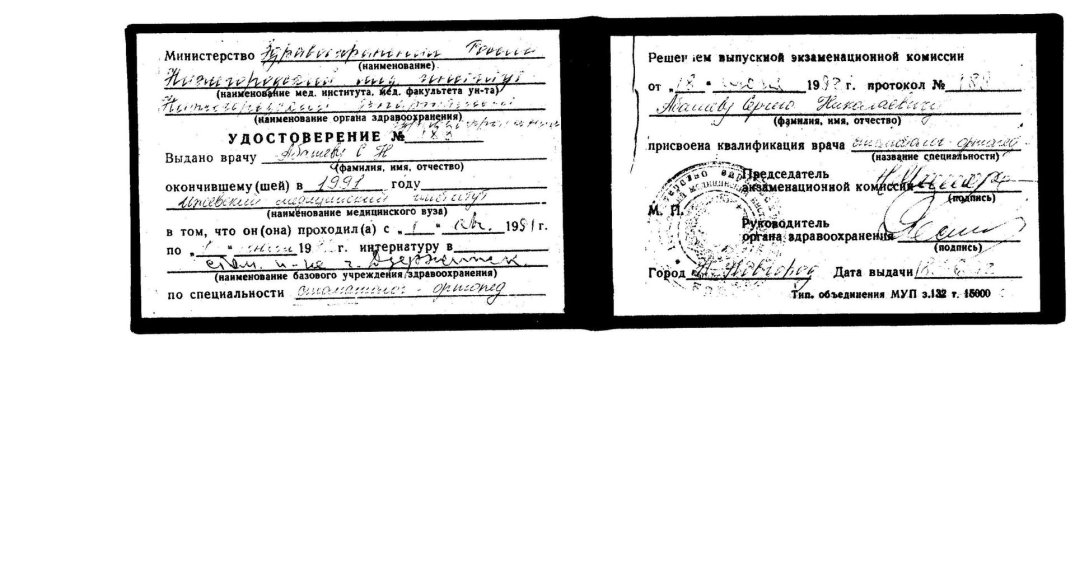 Министерство Здравоохранения России
(наименование)
Нижегородский мед институт
(наименование мед. института, мед. факультета ун-та)
Нижегородский
(наименование органа здравоохранения)
здравоохранения
УДОСТОВЕРЕНИЕ № 183
Выдано врачу С Н
(фамилия, имя, отчество)
окончившему (шей) в 1991 году
Ижевский медицинский институт
(наименование медицинского вуза)
в том, что он (она) проходил (а) с „1" авг. 1991 г.
по „1" 199 г. интернатуру в
стом. п-ке г. Дзержинск
(наименование базового учреждения здравоохранения)
по специальности стоматолог - ортопед
Решением выпускной экзаменационной комиссии
от „18" 1992 г. протокол № 183
Николаевичу
(фамилия, имя, отчество)
присвоена квалификация врача стоматолог ортопед
(название специальности)
Председатель
экзаменационной комиссии
(подпись)
М. П.
Руководитель
органа здравоохранения
(подпись)
Город Н. Новгород Дата выдачи
Тип. объединения МУП з.132 т. 15000